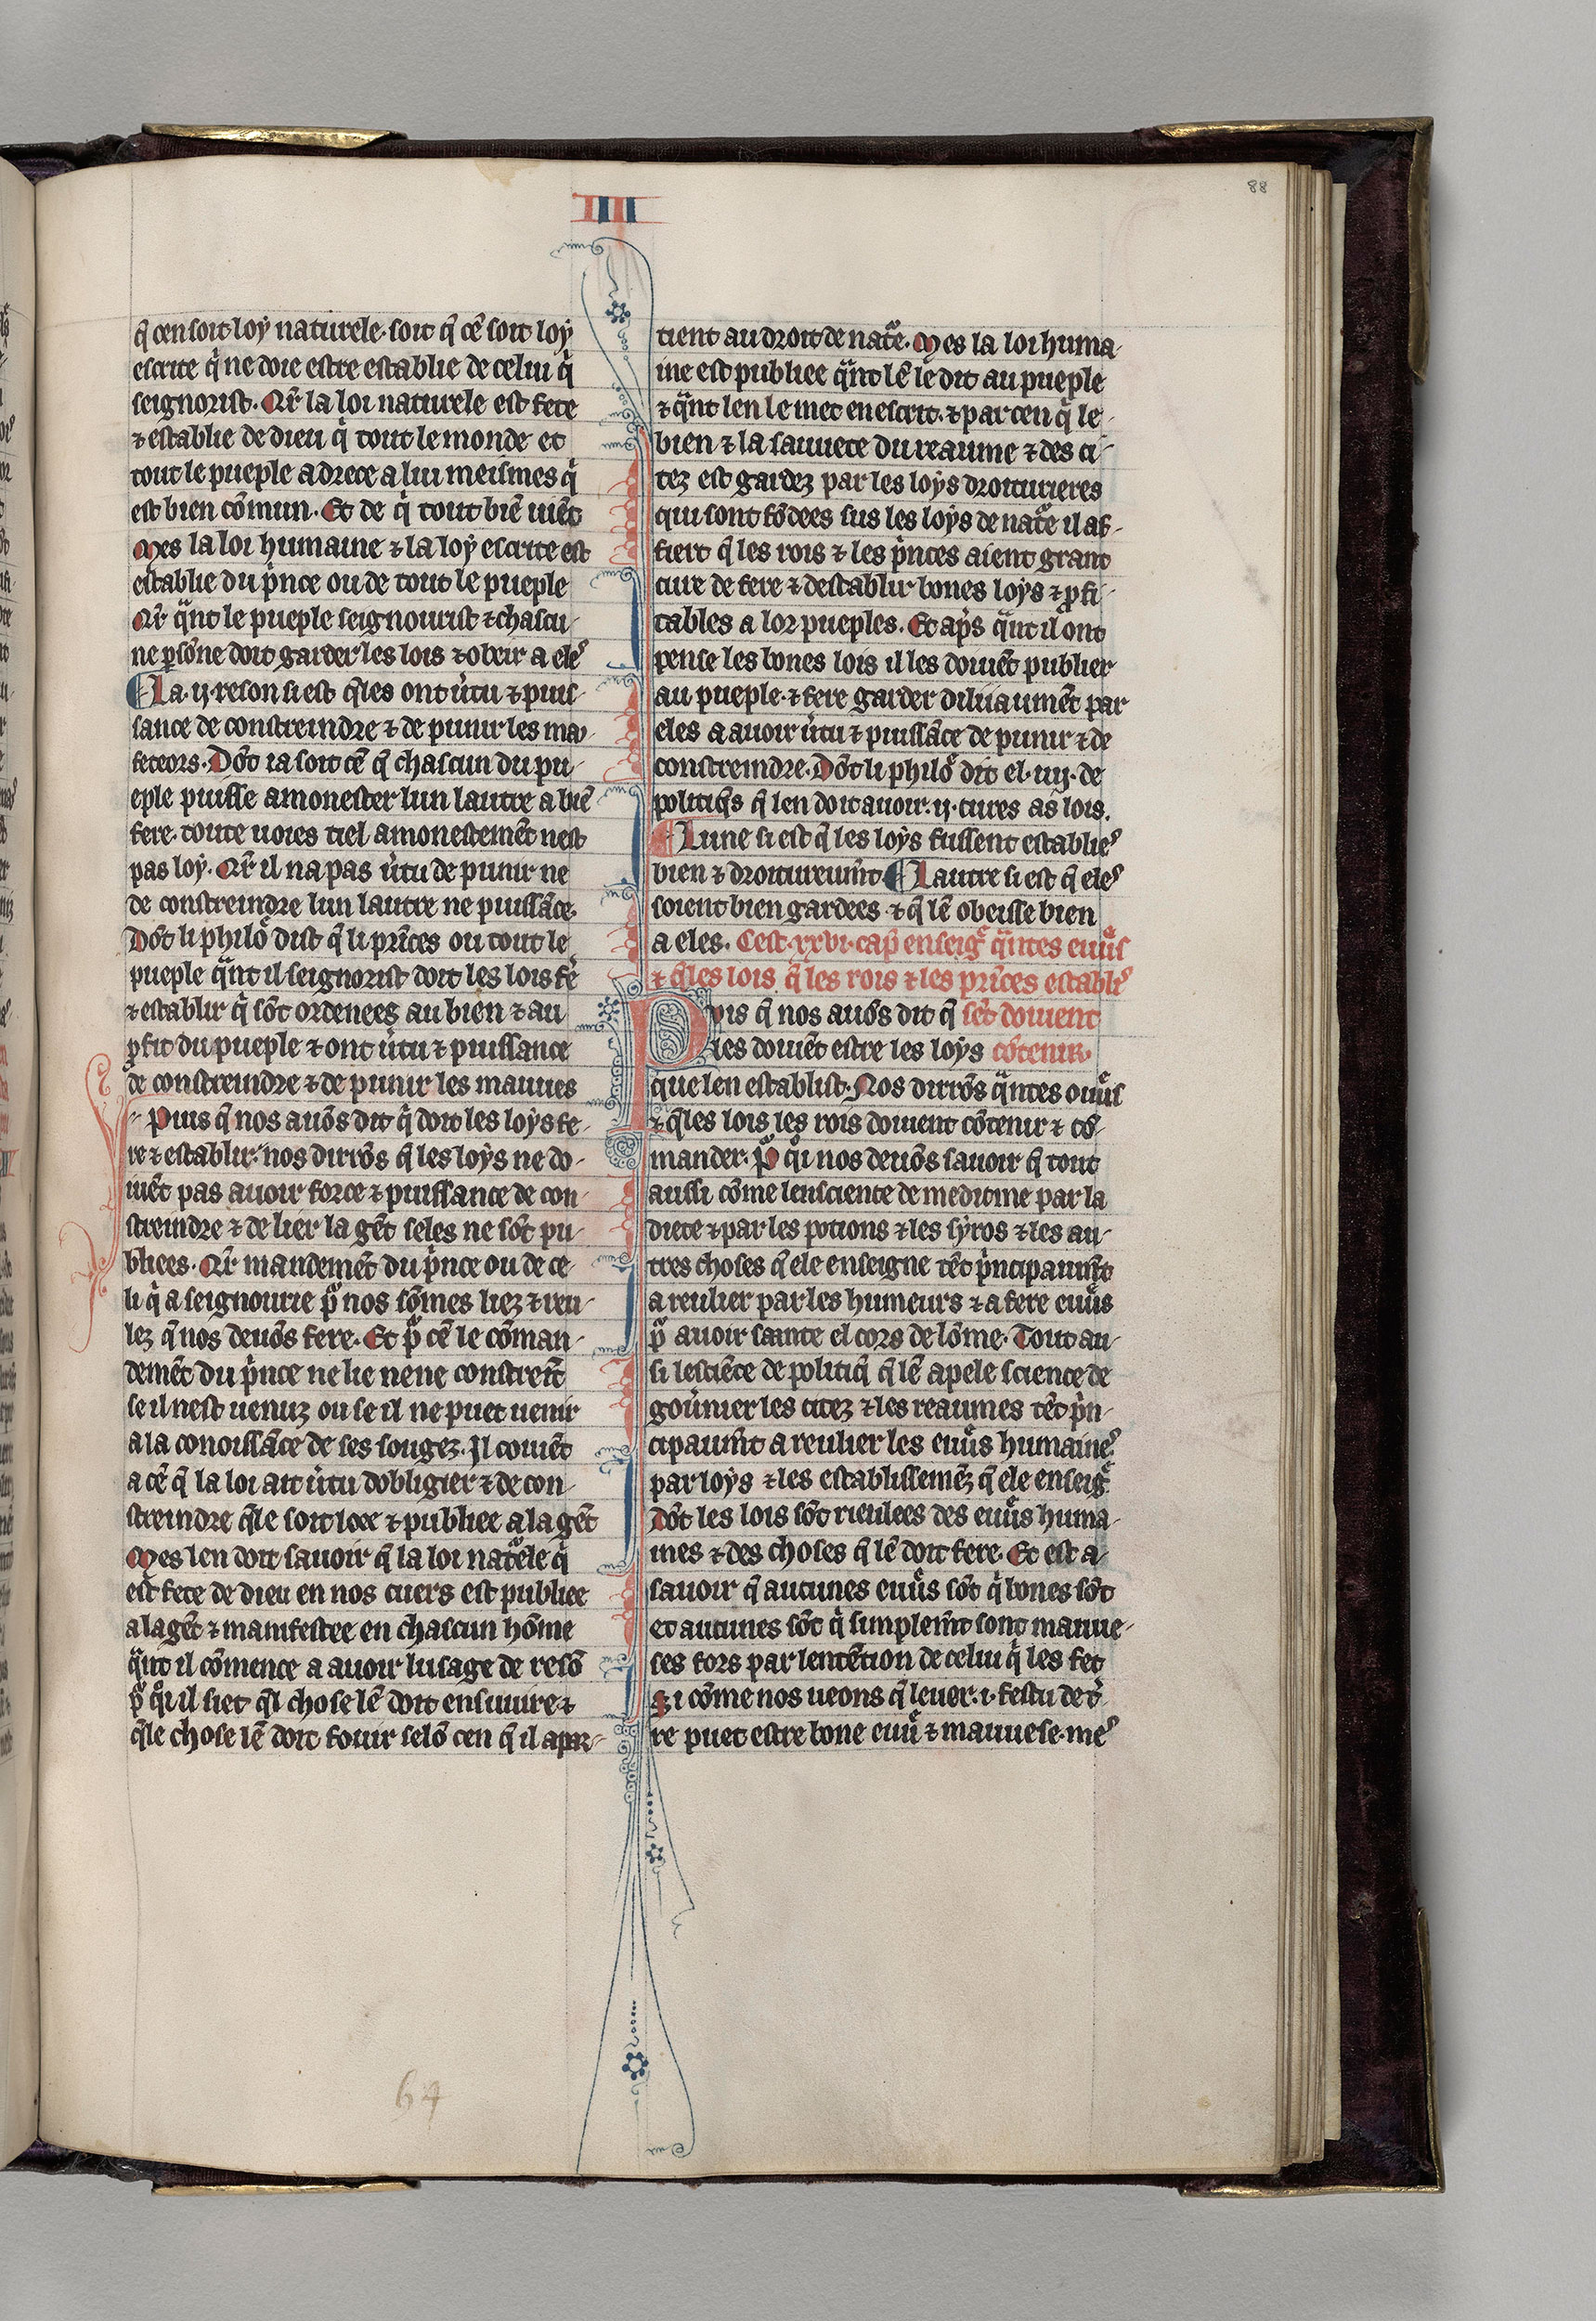 88
IIII
q̄ cen soit loy naturele. soit q̄ cē soit loy
escrite q̇ ne doie estre establie de celui q̇
seignorist. Qr̄ la loi naturele est fete
⁊ establie de dieu q̇ tout le monde et
tout le pueple adrece a lui meismes q̇
est bien cōmun. Et de q̇ tout biē uiēt
Mes la loi humaine ⁊ la loy escrite est
establie du pͥnce ou de tout le pueple
Qr̄ qᷓnt le pueple seignourist ⁊ chascu-
ne ꝑsōne doit garder les lois ⁊ obeir a eles
¶ La .ij. reson si est q̄les ont u̇tu ⁊ puis-
sance de constreindre ⁊ de punir les ma-
feteors. Dōt ia soit cē q̄ chascun du pu-
eple puisse amonester lun lautre a biē
fere. toute uoies tiel amonestemēt nest
pas loy. Qr̄ il na pas u̇tu de punir ne
de constreindre lun lautre ne puissāce.
Dōt li philo̾ dist q̄ li prīces ou tout le
pueple qᷓnt il seignorist doit les lois fē
⁊ establir q̇ sōt ordenees au bien ⁊ au
ꝓfit du pueple ⁊ ont u̇tu ⁊ puissance
de constreindre ⁊ de punir les mauues
Puis q̄ nos auōs dit q̇ doit les loys fe-
re ⁊ establir. nos dirrōs q̄ les loys ne do-
iuēt pas auoir force ⁊ puissance de con-
streindre ⁊ de lier la gēt seles ne sōt pu-
bliees. Qr̄ mandemēt du pͥnce ou de ce-
li q̇ a seignourie p̾ nos sōmes liez ⁊ reu-
lez q̄ nos deuōs fere. Et p̾ cē le cōman-
demēt du pͥnce ne lie nene constreīt
se il nest uenuz ou se il ne puet uenir
a la conoissāce de ses sougez. Il couiēt
a cē q̄ la loi ait u̇tu dobligier ⁊ de con-
streindre q̄le soit loee ⁊ publiee a la gēt
Mes len doit sauoir q̄ la loi nat̾ele q̇
est fete de dieu en nos cuers est publiee
a la gēt ⁊ manifestee en chascun hōme
qᷓnt il cōmence a auoir lusage de resō
p̾ q̇i il siet q̄l chose lē doit ensuiure ⁊
q̄le chose lē doit fouir selō cen q̄ il apar-
tient au droit de nat̾e. Mes la loi huma-
ine est publiee qᷓnt lē le dit au pueple
⁊ qᷓnt len le met en escrit. ⁊ par cen q̄ le
bien ⁊ la sauuete du reaume ⁊ des ci-
tez est gardez par les loys droiturieres
qui sont fōdees sus les loys de nat̾e il af-
fiert q̄ les rois ⁊ les pͥnces aient grant
cure de fere ⁊ destablir bones loys ⁊ ꝓfi-
tables a lor pueples. Et ap̄s qᷓnt il ont
pense les bones lois il les doiuēt publier
au pueple. ⁊ fere garder diliiaumēt par
eles a auoir u̇tu ⁊ puissāce de punir ⁊ de
constreindre. Dōt li philo̾ dit el .iiij. de
politiq̄s q̄ len doit auoir .ij. cures as lois.
¶ Lune si est q̄ les loys fussent establies
bien ⁊ droitureum̄t ¶ Lautre si est q̄ eles
soient bien gardees ⁊ q̄ lē obeisse bien
a eles. Cest .xxvi. cap̄ enseig̾ qᷓntes euu̾s
⁊ q̄les lois q̄ les rois ⁊ les prīces establis
Puis q̄ nos auōs dit q̄ sēt doiuent
les doiuēt estre les loys cōtenir.
que len establist. Nos dirrōs qᷓntes ouu̾s
⁊ q̄les lois les rois doiuent cōtenir ⁊ cō-
mander. P̾ q̇i nos deuōs sauoir q̄ tout
aussi cōme lensciente de medicine par la
diete ⁊ par les potions ⁊ les syros ⁊ les au-
tres choses q̄ ele enseigne tēt pͥncipaum̄t
a reulier par les humeurs ⁊ a fere euu̾s
p̾ auoir sante el cors de lōme. Tout au-
si lesciēce de politiq̄ q̄ lē apele science de
gou̇nier les citez ⁊ les reaumes tēt pͥn-
cipaum̄t a reulier les euu̾s humaines
par loys ⁊ les establissemēz q̄ ele enseig̾
Dōt les lois sōt rieulees des euu̾s huma-
ines ⁊ des choses q̄ lē doit fere. Et est a-
sauoir q̄ aucunes euu̾s sōt q̇ bones sōt
et aucunes sōt q̇ simplem̄t sont mauue-
ses fors par lentētion de celui q̇ les fet
Si cōme nos ueons q̄ leuer .i. festu de t̾-
re puet estre bone euu̾ ⁊ mauuese. mes
64